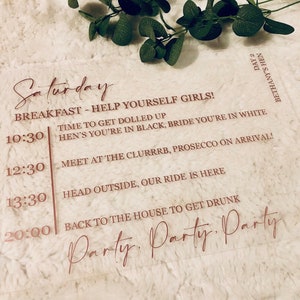 Saturday
BREAKFAST - HELP YOURSELF GIRLS!
10:30
TIME TO GET DOLLED UP
HEN'S YOU'RE IN BLACK, BRIDE YOU'RE IN WHITE
12:30
MEET AT THE CLURRRB, PROSECCO ON ARRIVAL!
13:30
HEAD OUTSIDE, OUR RIDE IS HERE
20:00
BACK TO THE HOUSE TO GET DRUNK
Party, Party, Party
BETHANY'S HEN
DAY 2